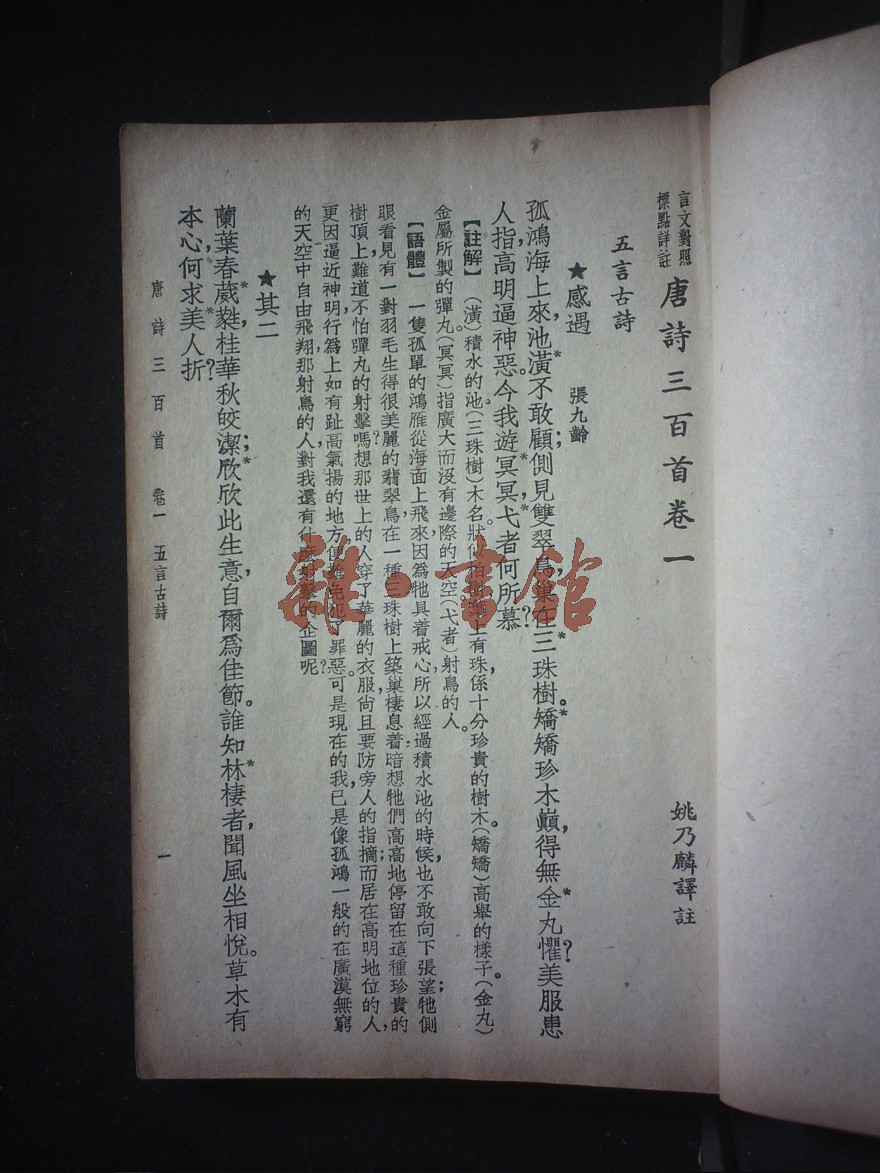 言文對照
標點詳註
唐詩三百首卷一
姚乃麟譯註
五言古詩
★感遇 張九齡
孤鴻海上來，池潢*不敢顧；側見雙翠鳥，巢在三珠樹*。矯矯*珍木巔，得無金丸*懼？美服患
人指，高明逼神惡。今我遊冥冥*，弋者*何所慕？
【註解】 （潢）積水的池。（三珠樹）木名，狀似柏樹，葉上有珠，係十分珍貴的樹木。（矯矯）高舉的樣子。（金丸）
金屬所製的彈丸。（冥冥）指廣大而沒有邊際的天空。（弋者）射鳥的人。
【語體】 一隻孤單的鴻雁，從海面上飛來，因爲牠具着戒心，所以經過積水池的時候，也不敢向下張望；牠側
眼看見有一對羽毛生得很美麗的翡翠鳥，在一種三珠樹上築巢棲息着；暗想牠們高高地停留在這種珍貴的
樹頂上，難道不怕彈丸的射擊嗎？想那世上的人，穿了華麗的衣服，尚且要防旁人的指摘；而居在高明地位的人，
更因逼近神明，行爲上如有趾高氣揚的地方，便難免犯了罪惡。可是現在的我，已是像孤鴻一般的在廣漠無窮
的天空中自由飛翔，那射鳥的人，對我還有什麽射擊的企圖呢？
★其二
蘭葉春葳蕤*，桂華秋皎潔；欣欣*此生意，自爾爲佳節。誰知林棲者*，聞風坐相悅。草木有
本心，何求美人*折？
唐詩三百首 卷一 五言古詩
一
雜·書館